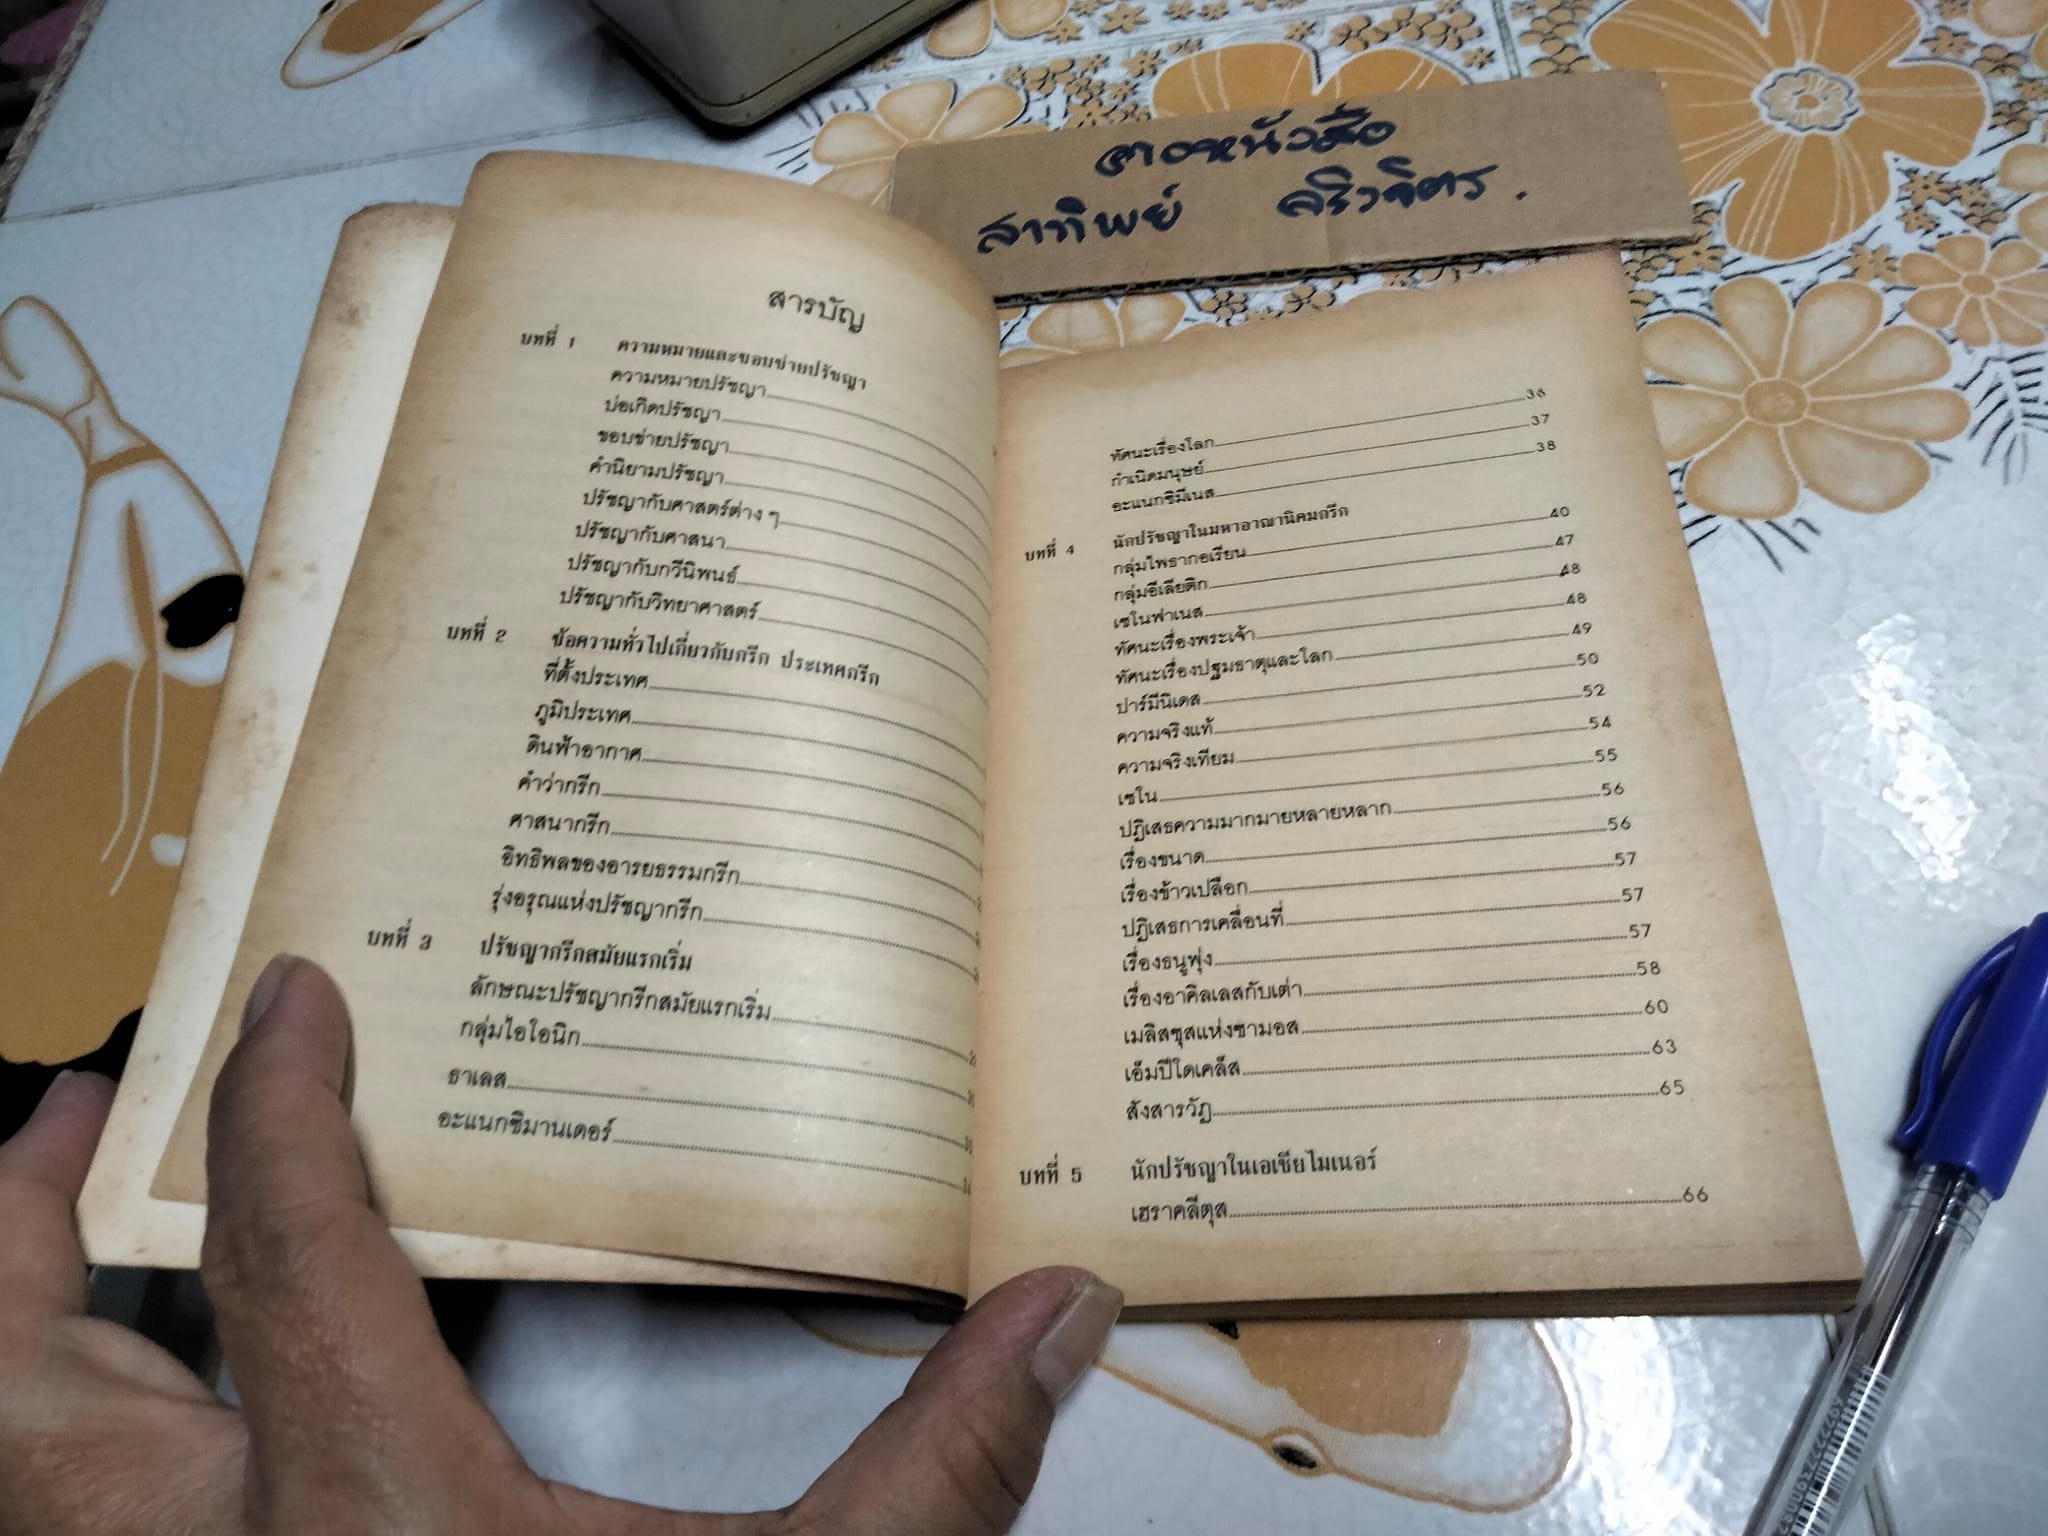 สารบัญ
บทที่ 1 ความหมายและขอบข่ายปรัชญา
ความหมายปรัชญา
บ่อเกิดปรัชญา
ขอบข่ายปรัชญา
คำนิยามปรัชญา
ปรัชญากับศาสตร์ต่าง ๆ
ปรัชญากับศาสนา
ปรัชญากับกวีนิพนธ์
ปรัชญากับวิทยาศาสตร์
บทที่ 2 ข้อความทั่วไปเกี่ยวกับกรีก ประเทศกรีก
ที่ตั้งประเทศ
ภูมิประเทศ
ดินฟ้าอากาศ
คำว่ากรีก
ศาสนากรีก
อิทธิพลของอารยธรรมกรีก
รุ่งอรุณแห่งปรัชญากรีก
บทที่ 3 ปรัชญากรีกสมัยแรกเริ่ม
ลักษณะปรัชญากรีกสมัยแรกเริ่ม
กลุ่มไอโอนิก
ธาเลส
อะแนกซิมานเดอร์
หนังสือ
สาทิพย์
ทัศนะเรื่องโลก 36
กำเนิดมนุษย์ 37
อะแนกซิมีเนส 38
บทที่ 4 นักปรัชญาในมหาอาณานิคมกรีก
กลุ่มไพธากอเรียน 40
กลุ่มอีเลียติก 47
เซโนฟาเนส 48
ทัศนะเรื่องพระเจ้า 48
ทัศนะเรื่องปฐมธาตุและโลก 49
ปาร์มีนิเดส 50
ความจริงแท้ 52
ความจริงเทียม 54
เซโน 55
ปฏิเสธความมากมายหลายหลาก 56
เรื่องขนาด 56
เรื่องข้าวเปลือก 57
ปฏิเสธการเคลื่อนที่ 57
เรื่องธนูพุ่ง 57
เรื่องอาคิลเลสกับเต่า 58
เมลิสซุสแห่งซามอส 60
เอ็มปีโดเคล็ส 63
สังสารวัฏ 65
บทที่ 5 นักปรัชญาในเอเชียไมเนอร์
เฮราคลีตุส 66